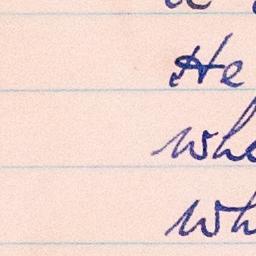 He
whe
wh